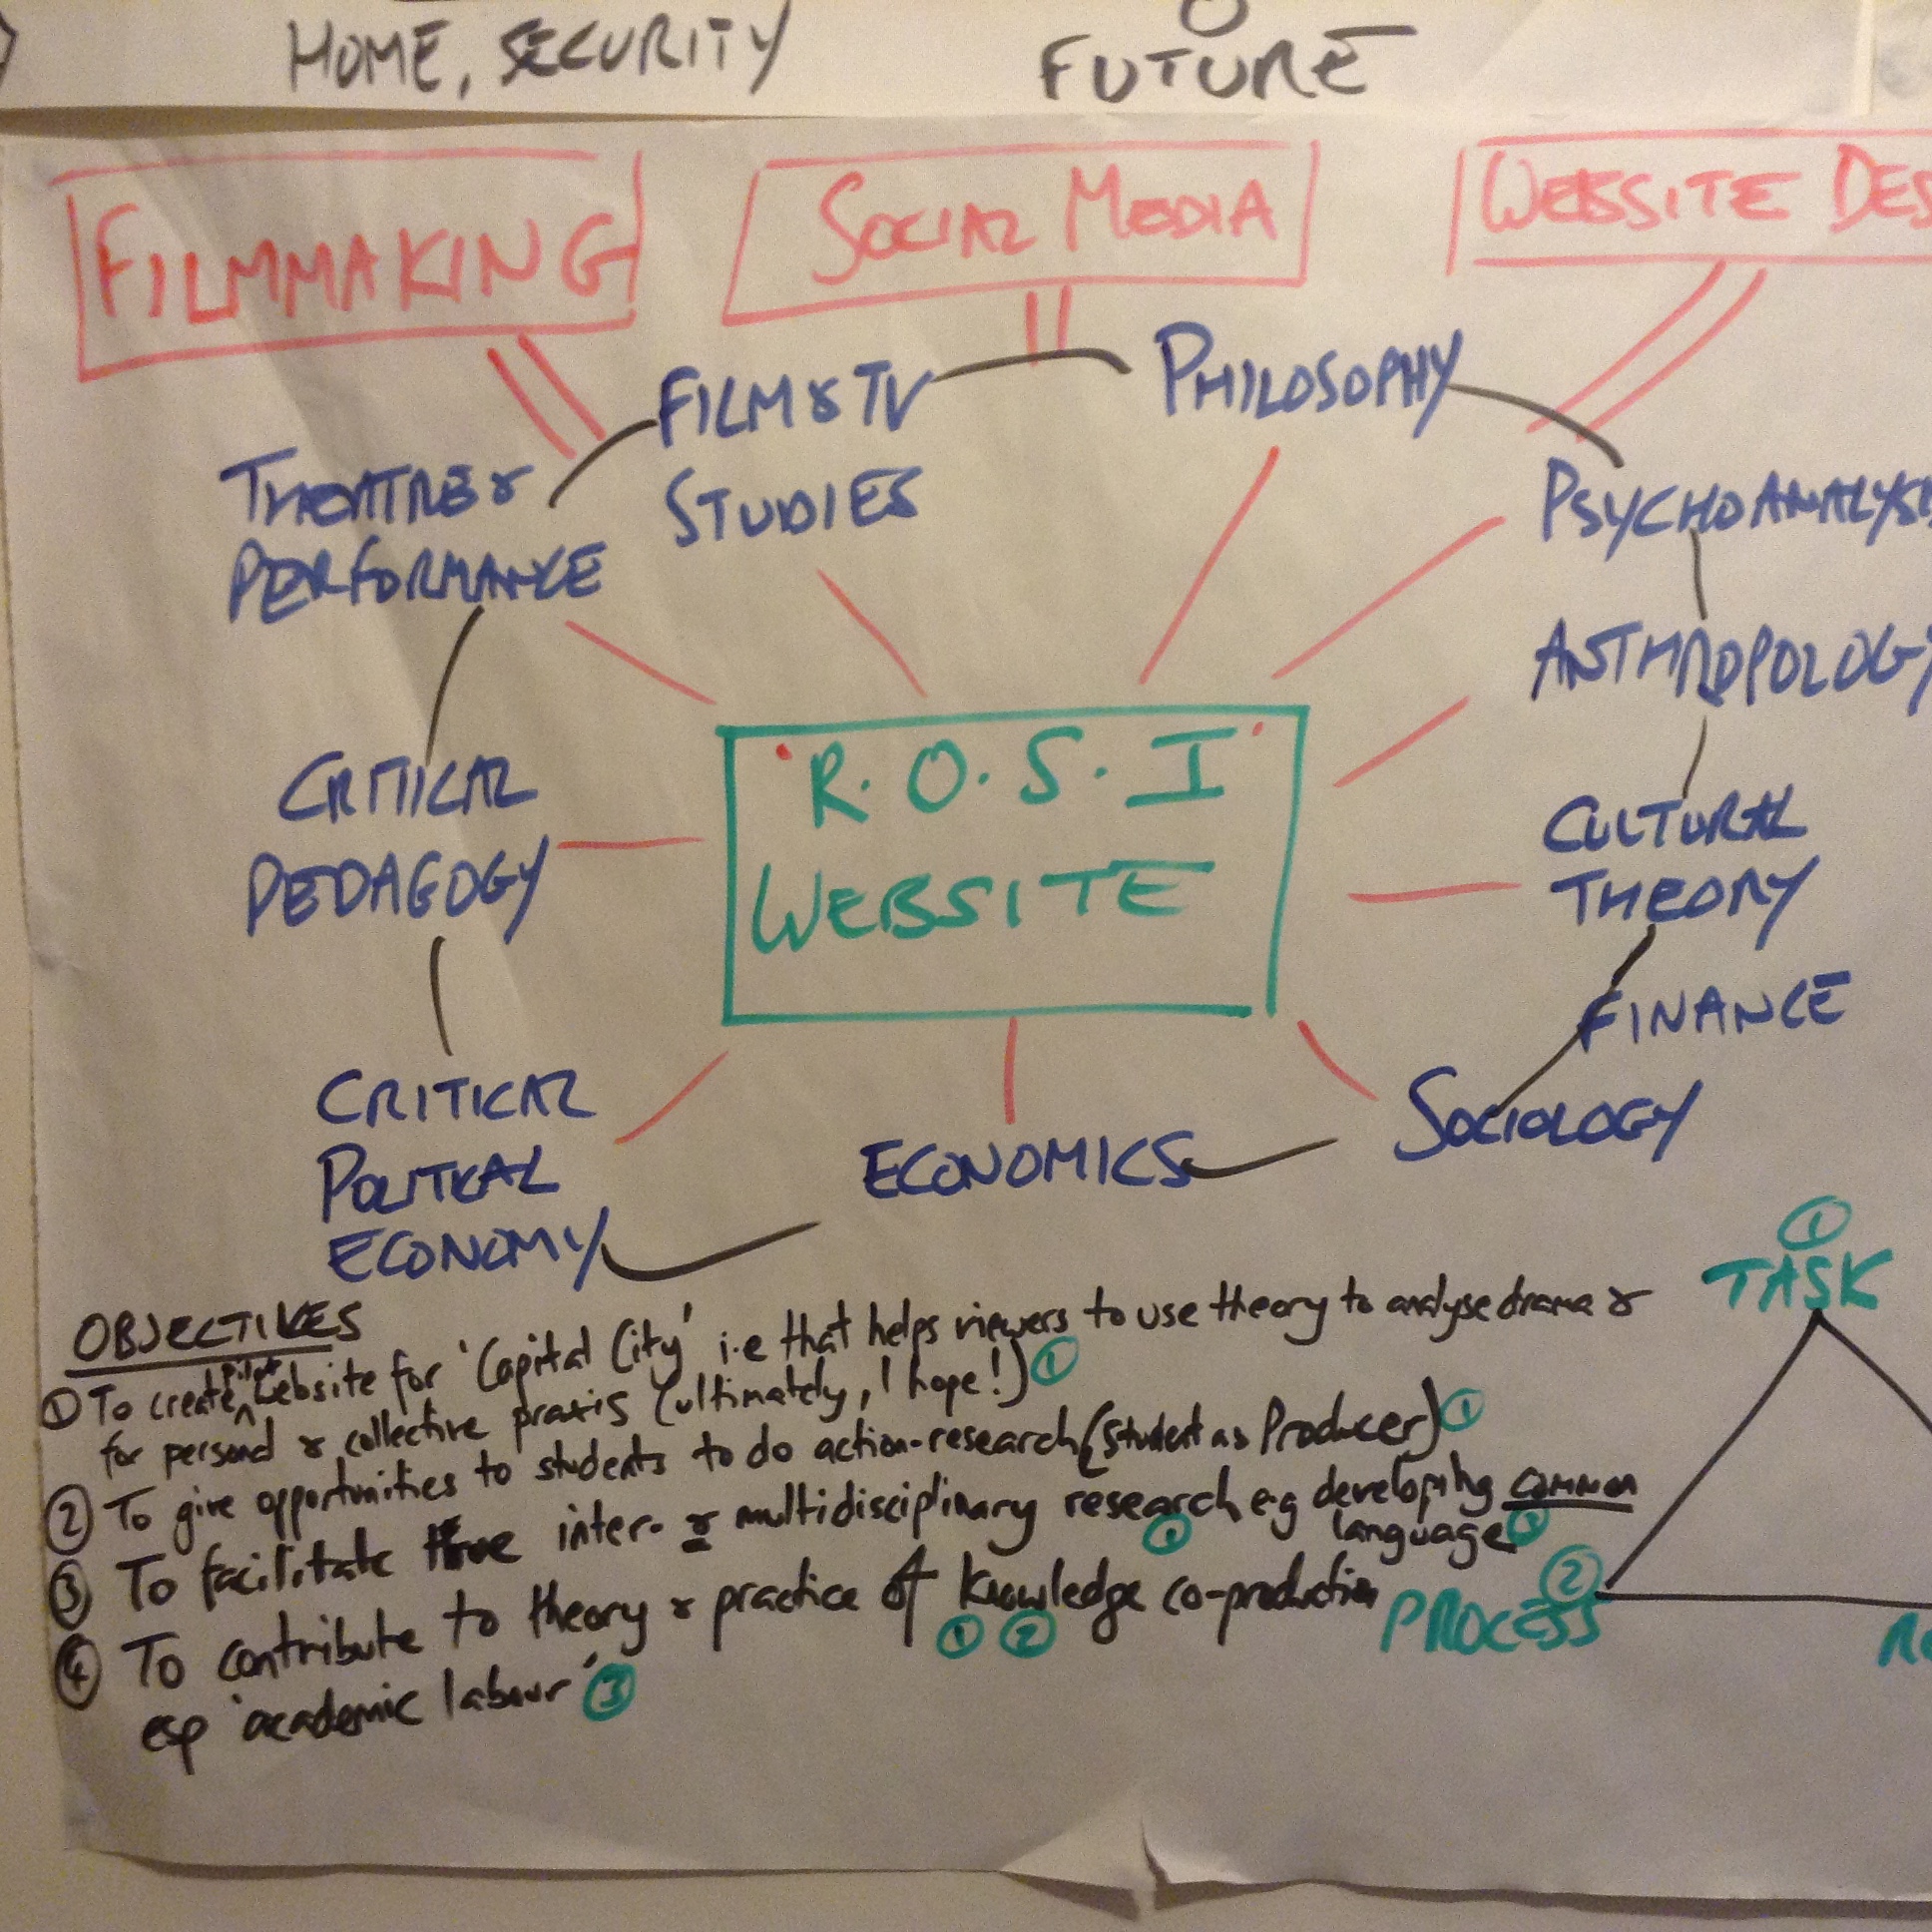 HOME, SECURITY
FUTURE
FILMMAKING
SOCIAL MEDIA
WEBSITE DES
FILM & TV
STUDIES
PHILOSOPHY
THEATRE &
PERFORMANCE
PSYCHOANALYSI
ANTHROPOLOGY
R.O.S.I
WEBSITE
CRITICAL
PEDAGOGY
CULTURAL
THEORY
FINANCE
CRITICAL
POLITICAL
ECONOMY
ECONOMICS
SOCIOLOGY
OBJECTIVES
① To create pilot website for 'Capital City' i.e that helps viewers to use theory to analyse drama &
for personal & collective praxis (ultimately, I hope!) ①
② To give opportunities to students to do action-research (Student as Producer) ①
③ To facilitate true inter- & multidisciplinary research e.g developing common
language ①
①
④ To contribute to theory & practice of knowledge co-production
① ②
esp 'academic labour' ③
①
TASK
②
PROCESS